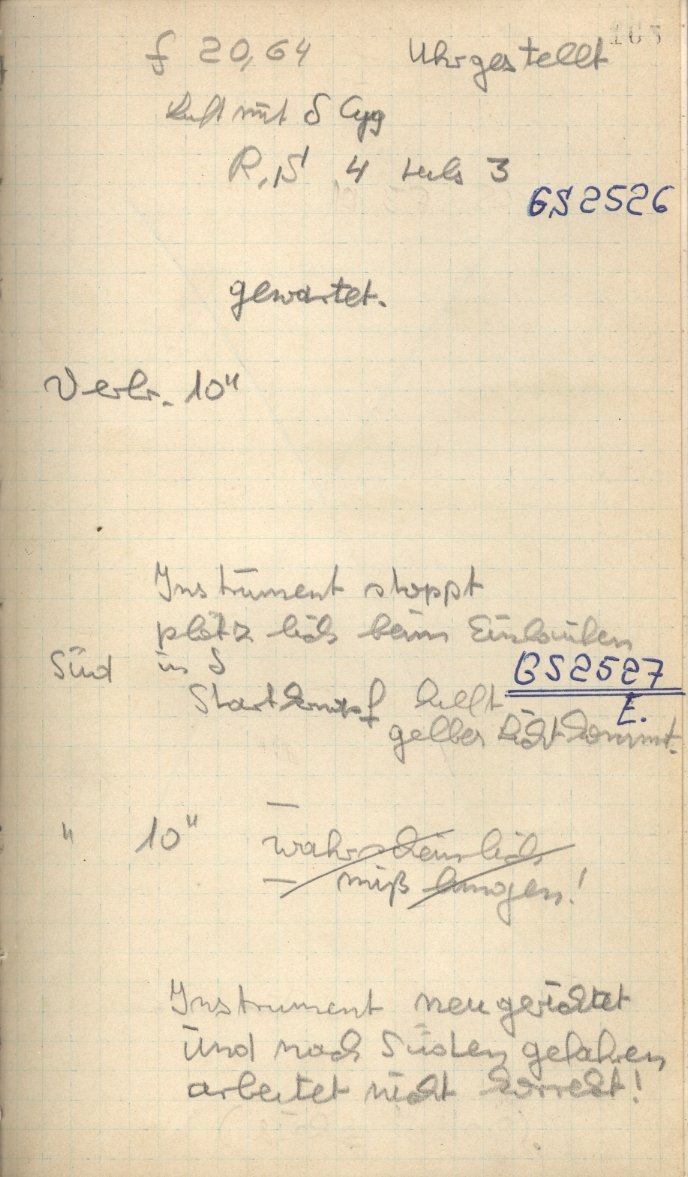 167
f 20,64 Uhr gestellt
Luft mit δ Cyg
R, S 4 teils 3
GS2526
gewartet.
Verbr. 10"
Instrument stoppt
plötzlich beim Einlaufen
Süd in S
GS2527
Startknopf hilft
E.
gelbes Licht kommt.
" 10" — wahrscheinlich
— mißlungen!
Instrument neu gerichtet
und nach Süden gefahren
arbeitet nicht korrekt!